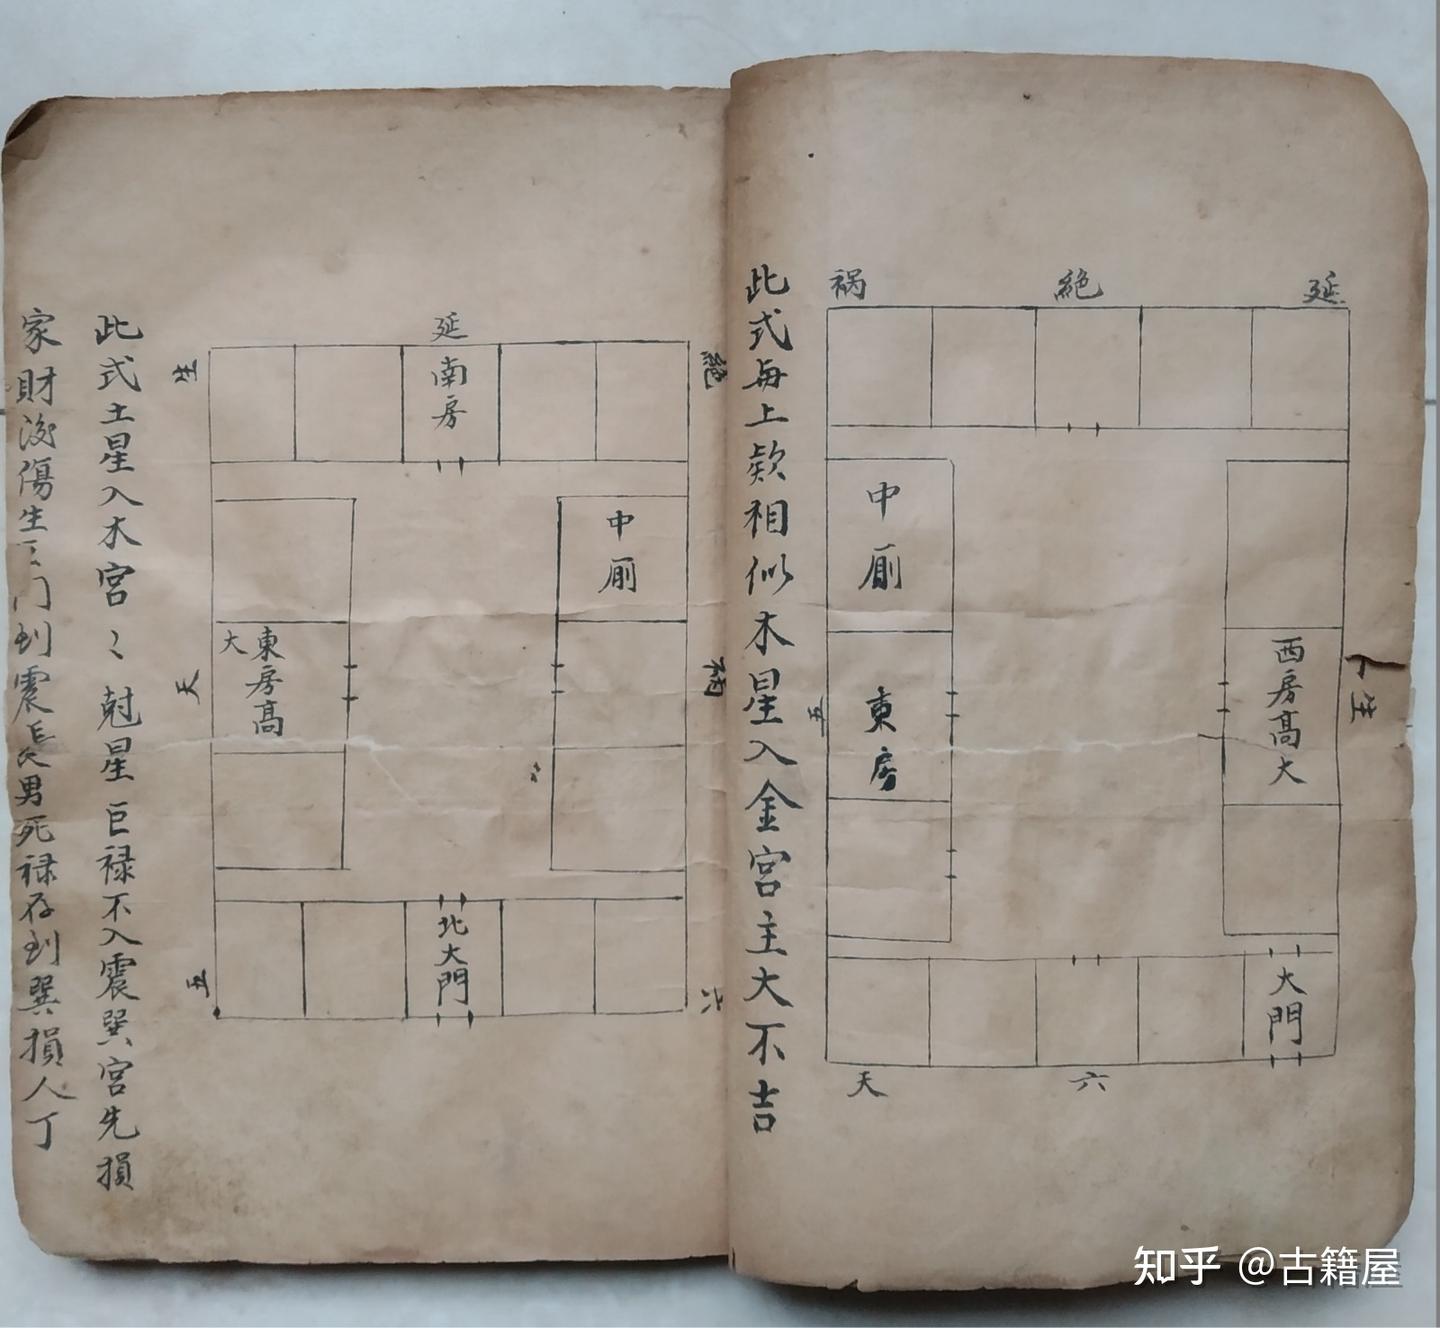 延
絶
祸
中
厠
東房
西房高大
大門
生
五
天
六
此式每上欵相似木星入金宮主大不吉
延
絶
生
南房
中
厠
東房高
大
天
祸
北大門
五
六
此式土星入木宮〻尅星巨禄不入震巽宮先損
家財後傷生門到震長男死禄存到巽損人丁
知乎 @古籍屋